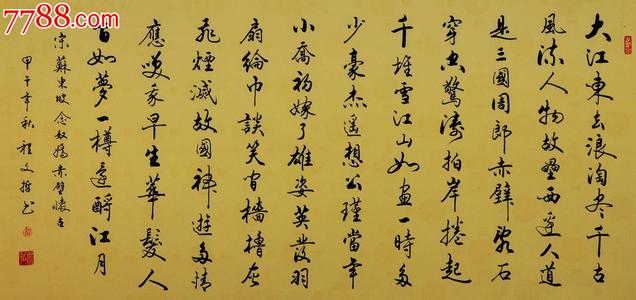 大江東去浪淘尽千古
風流人物故壘西邊人道
是三國周郎赤壁亂石
穿空驚濤拍岸捲起
千堆雪江山如画一時多
少豪杰遙想公瑾當年
小喬初嫁了雄姿英發羽
扇綸巾談笑间檣櫓灰
飛煙滅故國神遊多情
應笑我早生華髮人
间如夢一樽還酹江月
宋蘇東坡念奴嬌赤壁懷古
甲午年秋程文哲书
7788.com
中国收藏热线